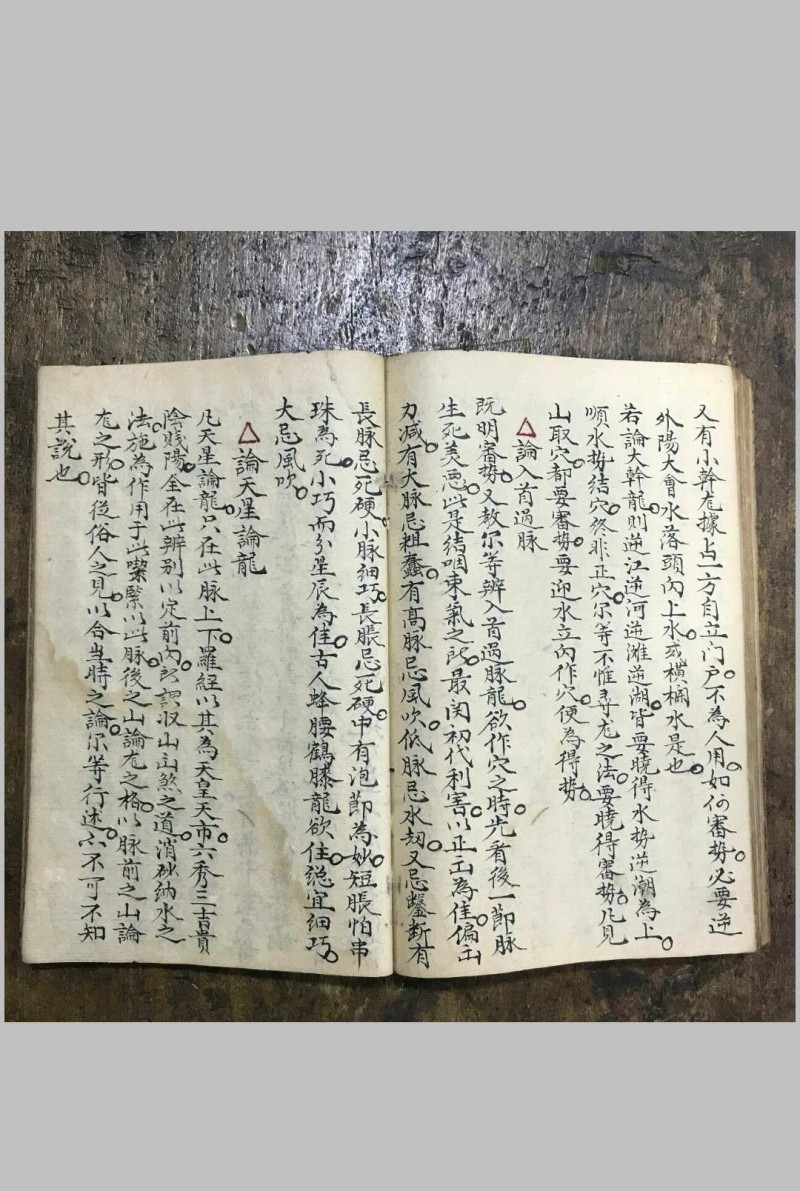 又有小幹尨據占一方自立门户不為人用如何審势必要逆
外陽大會水落頭內上水或橫欄水是也
若論大幹龍則逆江逆河逆滩逆湖皆要曉得水势逆潮為上
順水势結穴终非正穴尔等不惟尋尨之法要曉得審势凡見
山取穴都要審势要迎水立內作穴便為得势
△論入首過脉
既明審势又教尔等辨入首過脉龍欲作穴之時先看後一節脉
生死美恶此是結咽束氣之所最関初代利害以正出為佳偏出
力减有大脉忌粗蠢有高脉忌風吹低脉忌水刼又忌鑿断有
長脉忌死硬小脉细巧長脹忌死硬中有泡節為妙短脹怕串
珠為死小巧而分星辰為佳古人蜂腰鶴膝龍欲住総宜细巧
大忌風吹
△論天星論龍
凡天星論龍只在此脉上下羅經以其為天皇天市六秀三吉貴
陰贱陽全在此辨别以定前內所謂收山出煞之道消砂纳水之
法施為作用于此喫緊以此脉後之山論尨之格以脉前之山論
尨之形皆後俗人之見以合当時之論尔等行述亦不可不知
其說也